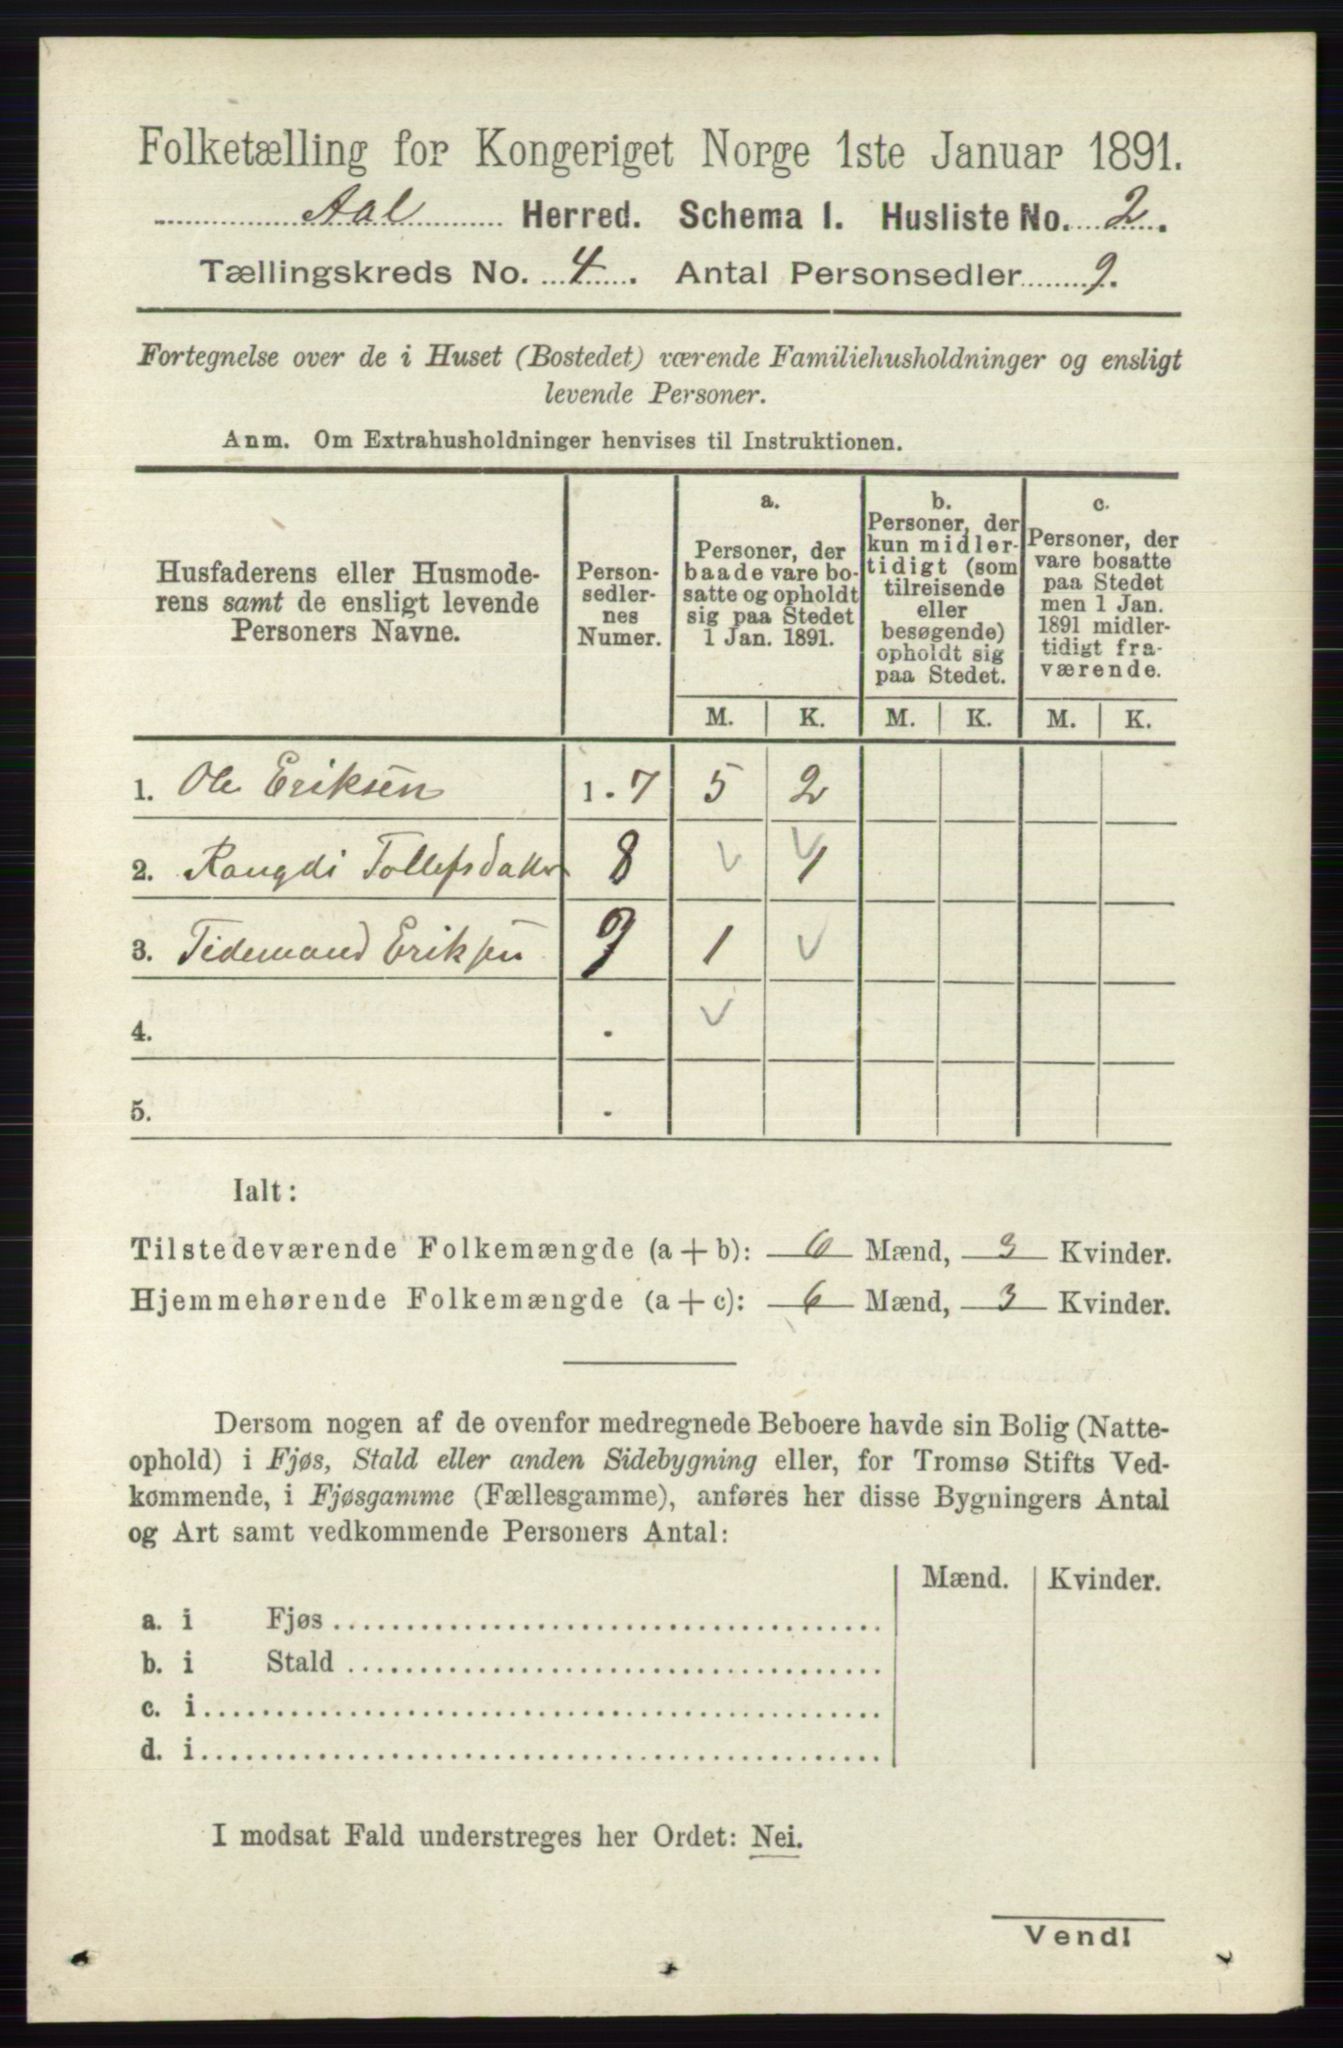 Folketælling for Kongeriget Norge 1ste Januar 1891.
Aal Herred. Schema 1. Husliste No. 2.
Tællingskreds No. 4. Antal Personsedler 9.
Fortegnelse over de i Huset (Bostedet) værende Familiehusholdninger og ensligt
levende Personer.
Anm. Om Extrahusholdninger henvises til Instruktionen.
Husfaderens eller Husmode-
rens samt de ensligt levende
Personers Navne.
Person-
sedler-
nes
Numer.
a.
Personer, der
baade vare bo-
satte og opholdt
sig paa Stedet
1 Jan. 1891.
b.
Personer, der
kun midler-
tidigt (som
tilreisende
eller
besøgende)
opholdt sig
paa Stedet.
c.
Personer, der
vare bosatte
paa Stedet
men 1 Jan.
1891 midler-
tidigt fra-
værende.
M. K. M. K. M. K.
1. Ole Eriksen 1 - 7 5 2
2. Rangdi Tollefsdatter 8 1
3. Tidemand Eriksen 9 1
4.
5.
Ialt:
Tilstedeværende Folkemængde (a + b): 6 Mænd, 3 Kvinder.
Hjemmehørende Folkemængde (a + c): 6 Mænd, 3 Kvinder.
Dersom nogen af de ovenfor medregnede Beboere havde sin Bolig (Natte-
ophold) i Fjøs, Stald eller anden Sidebygning eller, for Tromsø Stifts Ved-
kommende, i Fjøsgamme (Fællesgamme), anføres her disse Bygningers Antal
og Art samt vedkommende Personers Antal:
Mænd. Kvinder.
a. i Fjøs
b. i Stald
c. i
d. i
I modsat Fald understreges her Ordet: Nei.
Vend!